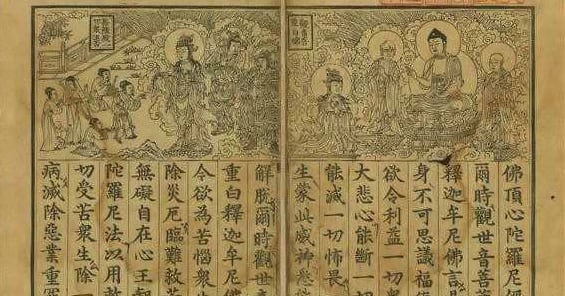 佛頂心陀羅尼
爾時觀世音菩薩
釋迦牟尼佛言
身不可思議福
欲令利益一切
大悲心能斷一切
能滅一切怖畏
生蒙此威神悉
解脫爾時觀世
重白釋迦牟尼佛
令欲為苦惱衆生
除災厄臨難救苦
無礙自在心王智
陀羅尼法以用救
切受苦衆生除一
病滅除惡業重罪